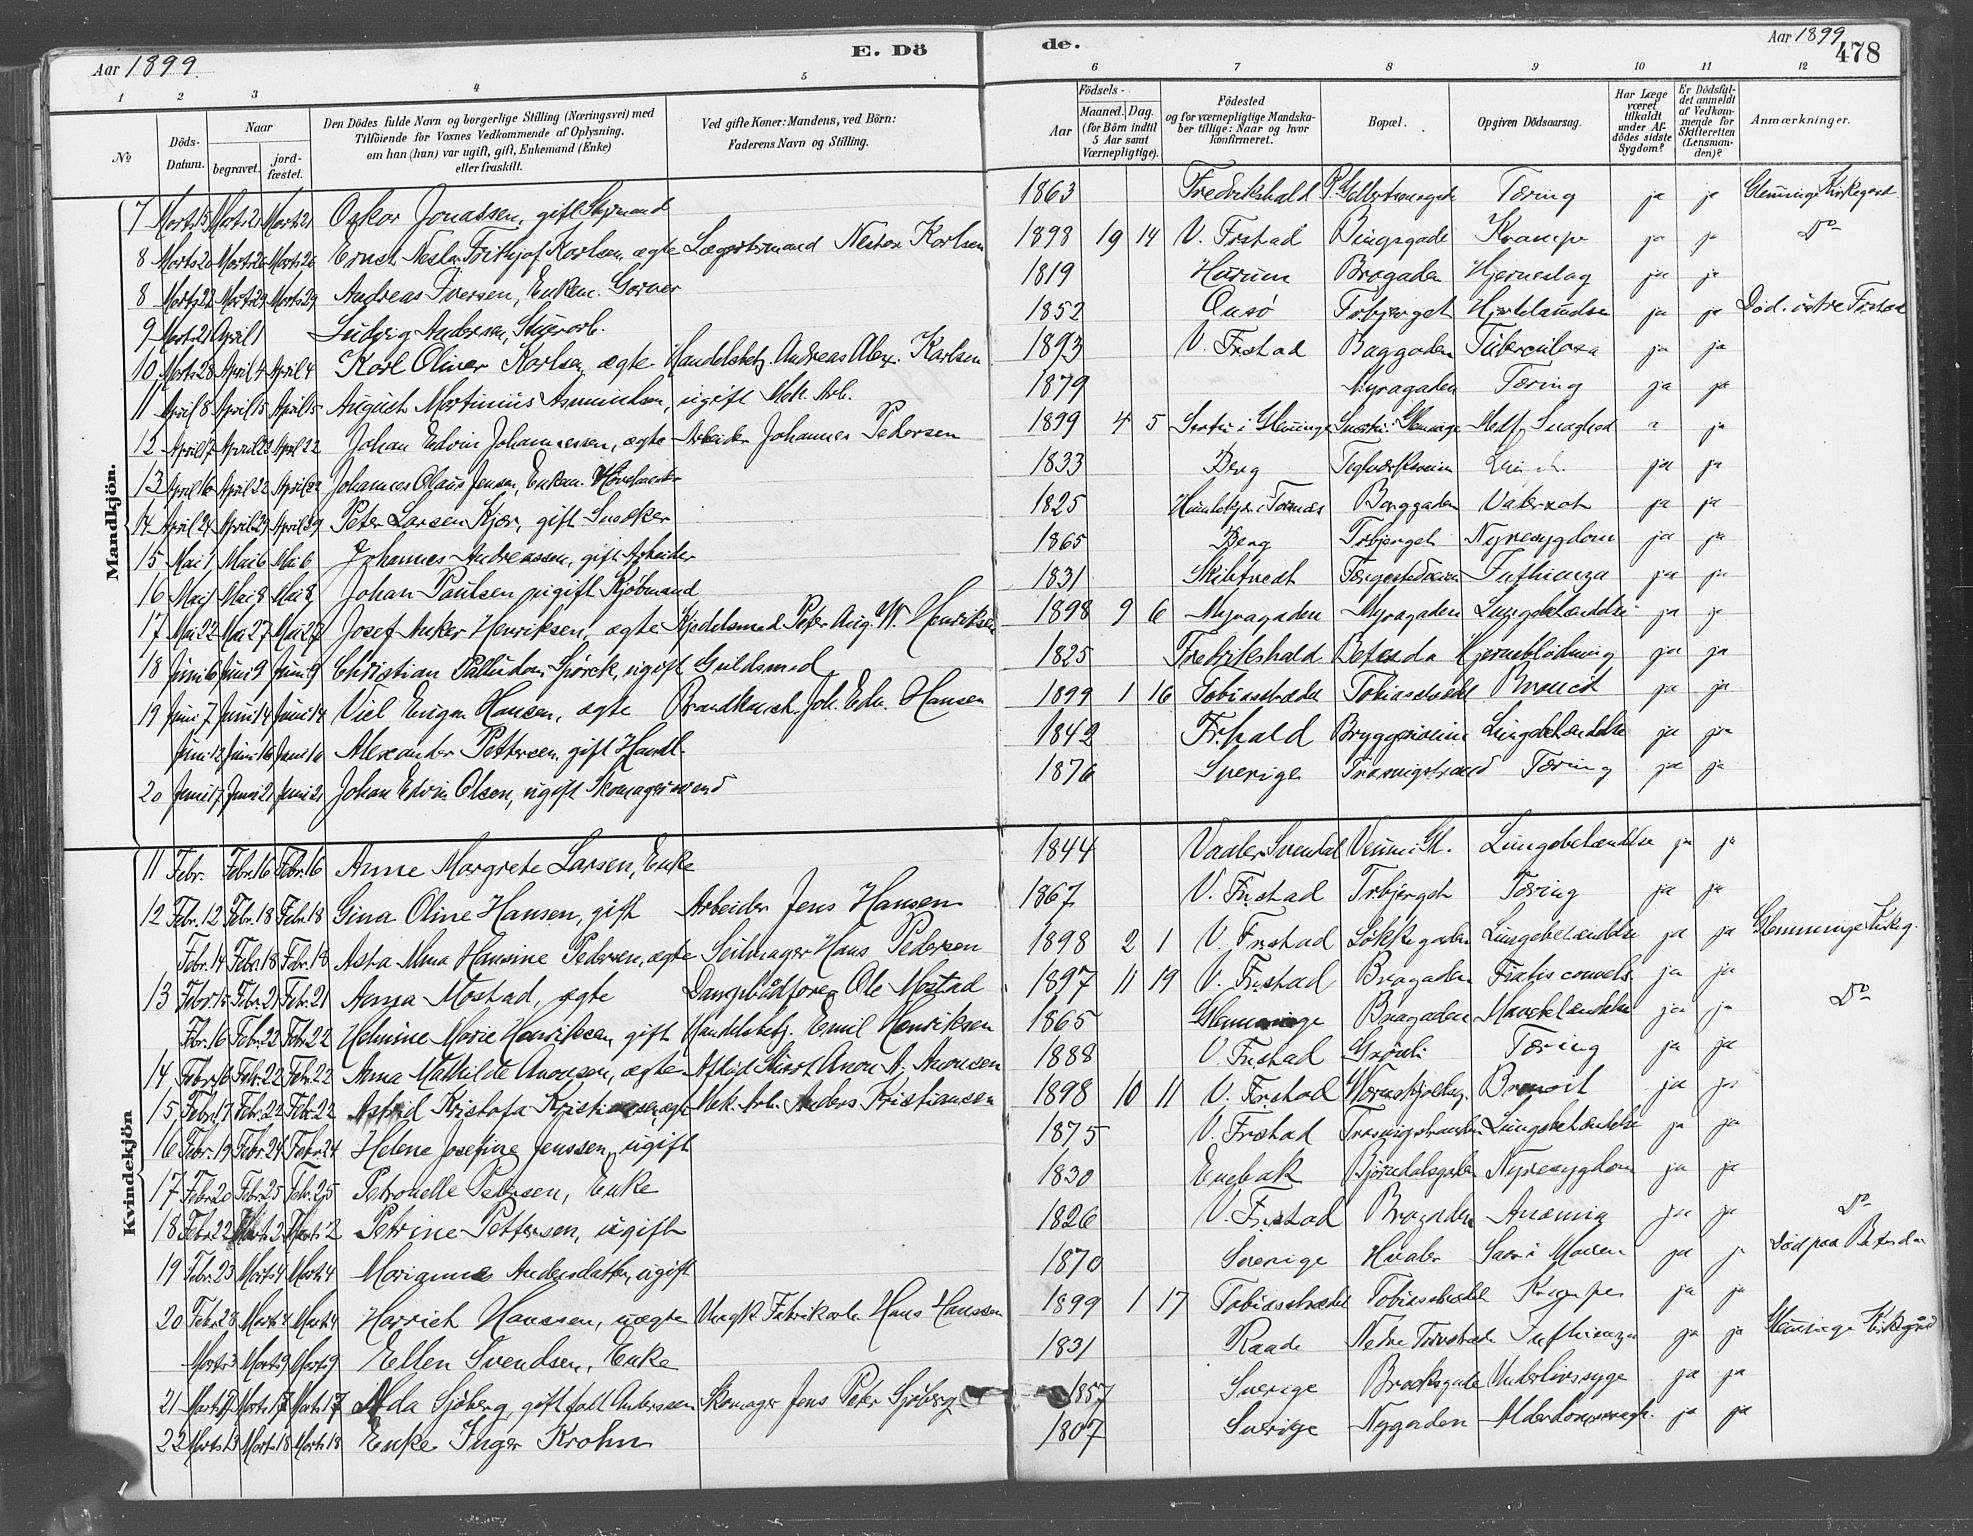 Aar 1899
E. Dö
de.
Aar 1899
478
1 2 3 4 5 6 7 8 9 10 11 12
No
Döds-Datum.
Naar
begravet.
jord-fæstet.
Den Dödes fulde Navn og borgerlige Stilling (Næringsvei) med
Tilföiende for Voxnes Vedkommende af Oplysning,
om han (hun) var ugift, gift, Enkemand (Enke)
eller fraskilt.
Ved gifte Koner: Mandens, ved Börn:
Faderens Navn og Stilling.
Födsels-
Aar
Maaned. Dag.
(for Börn indtil
5 Aar samt
Værnepligtige).
Födested
og for værnepligtige Mandska-
ber tillige: Naar og hvor
konfirmeret.
Bopæl.
Opgiven Dödsaarsag.
Har Læge
været
tilkaldt
under Af-
dödes sidste
Sygdom?
Er Dödsfal-
det anmeldt
af Vedkom-
mende for
Skifteretten
(Lensman-
den)?
Anmærkninger.
Mandkjön.
7 Marts 15 Marts 21 Marts 21 Oskar Jonassen, gift Styrmand 1863 Fredrikshald Tæring ja ja Glemminge Kirkegaard
8 Marts 20 Marts 26 Marts 26 Ernst Nestor Frithjof Karlsen, ægte Nestor Karlsen 1898 19 14 V. Frstad Bingsgade Krampe ja ja Do
8 Marts 22 Marts 29 Marts 29 Andreas Iversen, Enkem. Garver 1819 Hurum Brogaden Hjerneslag ja ja
9 Marts 21 April 1 Ludvig Andersen, 1852 Onsö Trbjerget ja ja Död i östre Frstad
10 Marts 28 April 4 April 4 Karl Oliver Karlsen, ægte Handelsbetj. Andreas Alex. Karlsen 1893 V. Frstad Baggaden Tuberculosa ja ja
11 April 8 April 15 April 15 August Martinius Asmundsen, ugift Mek. Arb. 1879 Myragaden Tæring ja ja
12 April 17 April 22 April 22 Johan Edvin Johannessen, ægte Arbeider Johannes Pedersen 1899 4 5 i Glemminge Glemminge Medf. Svaghed ja
13 April 16 April 22 April 22 Johannes Olaus Jensen, Enkem. 1833 Berg Teglværksveien ja ja
14 April 24 April 29 April 29 Peter Larsen Kjær, gift Snedker 1825 Borggaden ja ja
15 Mai 1 Mai 6 Mai 6 Johannes Andreassen, gift Arbeider 1865 Berg Trbjerget Nyresygdom ja ja
16 Mai Mai 8 Mai 8 Johan Paulsen ugift Kjöbmand 1831 Skibtvedt Influenza ja ja
17 Mai 22 Mai 27 Mai 27 Josef Anker Henriksen, ægte Kjedelsmed Peter Aug. W. Henriksen 1898 9 6 Myragaden Myragaden Lungebetændelse ja ja
18 Juni 6 Juni 9 Juni 9 Christian Palludan Spörck, ugift Guldsmed 1825 Fredrikshald Betesda Hjerneblödning ja ja
19 Juni 7 Juni 14 Juni 14 Hansen, ægte Brandkonst. Joh. Edv. Hansen 1899 1 16 Tobiasstrædet Tobiasstrædet Broncit ja ja
Juni 12 Juni 16 Juni 16 Alexander Pettersen, gift Handl. 1842 Fr.hald Bryggeriveien Lungebetændelse ja ja
20 Juni 17 Juni 21 Juni 21 Johan Edvin Olsen, ugift Skomagersvend 1876 Sverige Trosvigstrand Tæring ja ja
Kvindekjön
11 Febr. Febr. 16 Febr. 16 Anne Margrete Larsen, Enke 1844 Vaaler Svendal Veum i Gl. Lungebetændelse ja ja
12 Febr. 12 Febr. 18 Febr. 18 Gina Oline Hansen, gift Arbeider Jens Hansen 1867 V. Frstad Trbjerget Tæring ja ja
Febr. 14 Febr. 18 Febr. 18 Asta Alma Hansine Pedersen, ægte Seilmager Hans Pedersen 1898 2 1 V. Frstad Løkkegaden Lungebetændelse ja ja Glemminge Kirkeg.
13 Febr. 15 Febr. 21 Febr. 21 Anna Mostad, ægte Dampbådförer Ole Mostad 1897 11 19 V. Frstad Brogaden ja ja
Febr. 16 Febr. 22 Febr. 22 Helmine Marie Henriksen, gift Handelsbetj. Emil Henriksen 1865 Glemminge Brogaden Mavebetændelse ja ja Do
14 Febr. 16 Febr. 22 Febr. 22 Anna Mathilde Aronsen, ægte Aron A. Aronsen 1888 V. Frstad Grönli Tæring ja ja
15 Febr. 17 Febr. 22 Febr. 22 Astrid Kristofa Kristiansen, ægte Mek. Arb. Anders Kristiansen 1898 10 11 V. Frstad Broncit ja ja
16 Febr. 19 Febr. 24 Febr. 24 Helene Josefine Jenssen, ugift 1875 V. Frstad Trosvigstranden Lungebetændelse ja ja
17 Febr. 20 Febr. 25 Febr. 25 Petronelle Pedersen, Enke 1830 Enebak Björndalsgaden Nyresygdom ja ja
18 Febr. 22 Marts 2 Marts 2 Petrine Pettersen, ugift 1826 V. Frstad Brogaden Anæmia ja ja Do
19 Febr. 23 Marts 4 Marts 4 Marianne Andersdatter, ugift 1870 Sverige Hvaler Saar i Maven ja ja Död paa Betesda
20 Febr. 28 Marts 4 Marts 4 Harriet Hanssen, uægte Ungk. Fabrikarb. Hans Hanssen 1899 1 17 Tobiasstrædet Tobiasstrædet Krampe ja ja
Marts 3 Marts 9 Marts 9 Ellen Svendsen, Enke 1831 Raade Nedre Influenza ja ja Glemminge Kirkegård
21 Marts Marts 17 Marts 17 Alda Sjöberg, gift født Anderssen Skomager Jens Peter Sjöberg 1857 Sverige Brochsgade Underlivssyge ja ja
22 Marts 13 Marts 18 Marts 18 Enke Inger Krohn 1807 Sverige Nygaden Alderdomssvagh. ja ja